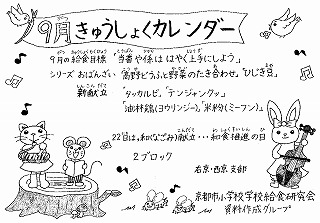 9月 きゅうしょくカレンダー
9月の給食目標 「当番や係は はやく上手にしよう」
シリーズ おばんざい 「高野どうふと野菜のたき合わせ」「ひじき豆」
新献立 「タッカルビ」「テンジャンクッ」
「油林鶏(ヨウリンジー)」「米粉(ミーフン)」
22日は、和(なごみ)献立・・・和食推進の日
2ブロック
右京・西京支部
京都市小学校学校給食研究会
資料作成グループ